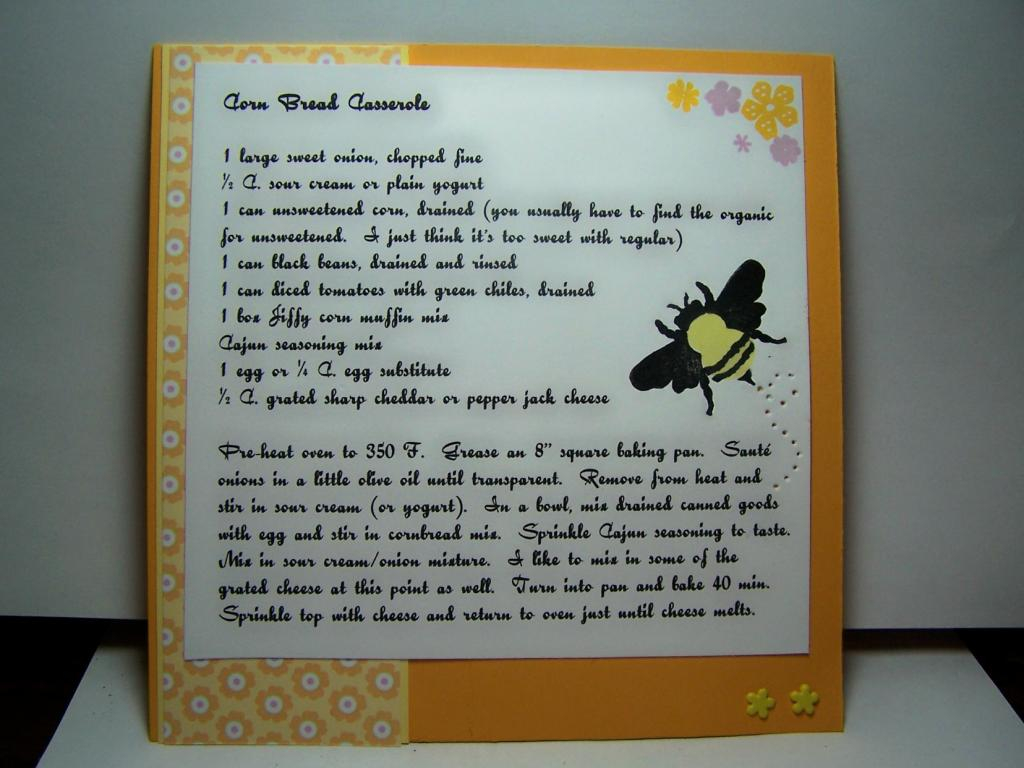 Corn Bread Casserole
1 large sweet onion, chopped fine
½ C. sour cream or plain yogurt
1 can unsweetened corn, drained (you usually have to find the organic
for unsweetened. I just think it's too sweet with regular)
1 can black beans, drained and rinsed
1 can diced tomatoes with green chiles, drained
1 box Jiffy corn muffin mix
Cajun seasoning mix
1 egg or ¼ C. egg substitute
½ C. grated sharp cheddar or pepper jack cheese
Pre-heat oven to 350 F. Grease an 8" square baking pan. Sauté
onions in a little olive oil until transparent. Remove from heat and
stir in sour cream (or yogurt). In a bowl, mix drained canned goods
with egg and stir in cornbread mix. Sprinkle Cajun seasoning to taste.
Mix in sour cream/onion mixture. I like to mix in some of the
grated cheese at this point as well. Turn into pan and bake 40 min.
Sprinkle top with cheese and return to oven just until cheese melts.